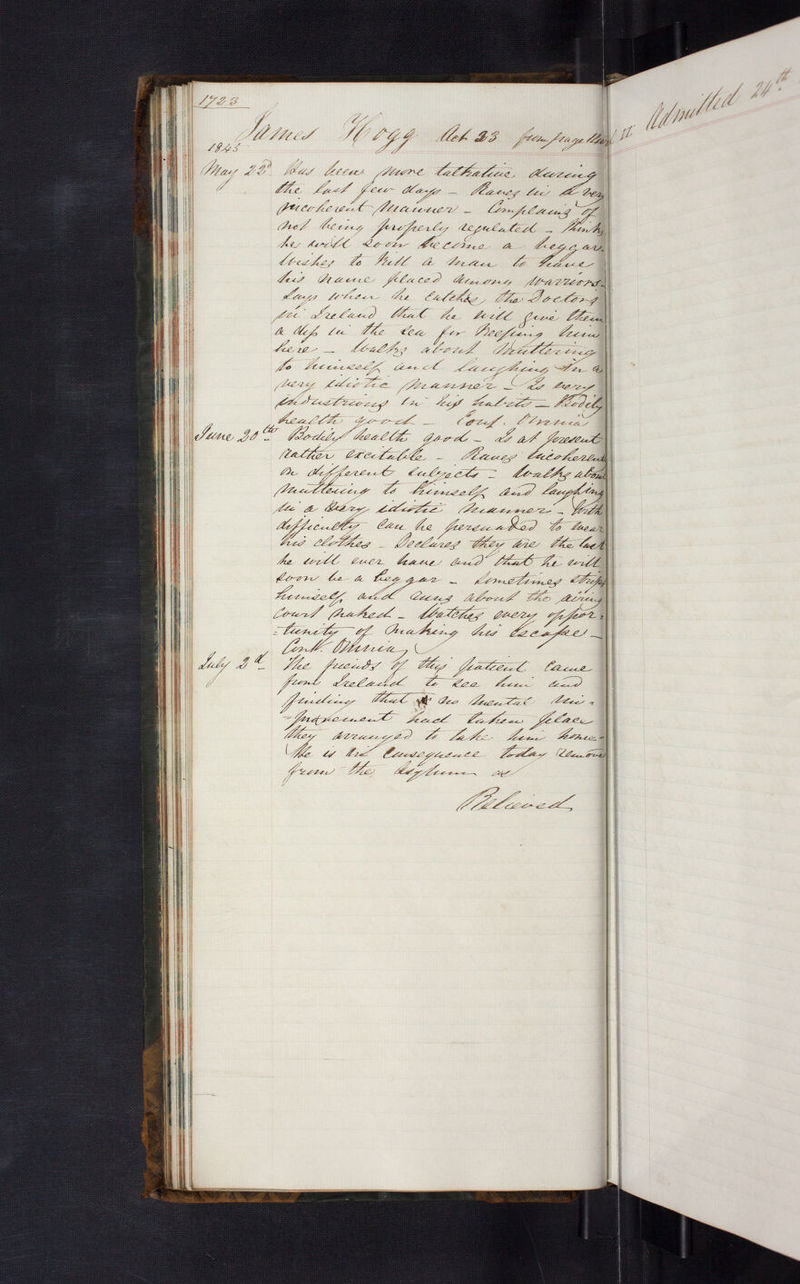 1723
James Hogg Aet 23 from page
1845
May 22d Has been more talkative during
the last few days - Raves in a very
incoherent manner - Complains of
not being properly regulated - Thinks
he will soon become a beggar -
Wishes to kill a man to have
his name placed among warriors -
Says when he catches the Doctors
in Ireland that he will give them
a dip in the sea for keeping him
here - Walks about muttering
to himself and laughing in a
very idiotic manner - Is very
industrious in his habits - Bodily
health good - Cont. Omnia
June 20th Bodily health good - Is at present
rather excitable - Raves incoherently
on different subjects - Walks about
muttering to himself and laughing
in a very idiotic manner - With
difficulty can be persuaded to wear
his clothes - Declares they are the last
he will ever have and that he will
soon be a beggar - Sometimes strips
himself and runs about the airing
court naked - Watches every oppor=
=tunity of making his escape -
Cont. Omnia
July 2d The friends of this patient came
from Ireland to see him and
finding that no mental im=
=provement had taken place
they arranged to take him home -
He is in consequence today removed
from the Asylum as
Relieved
Admitted 24th